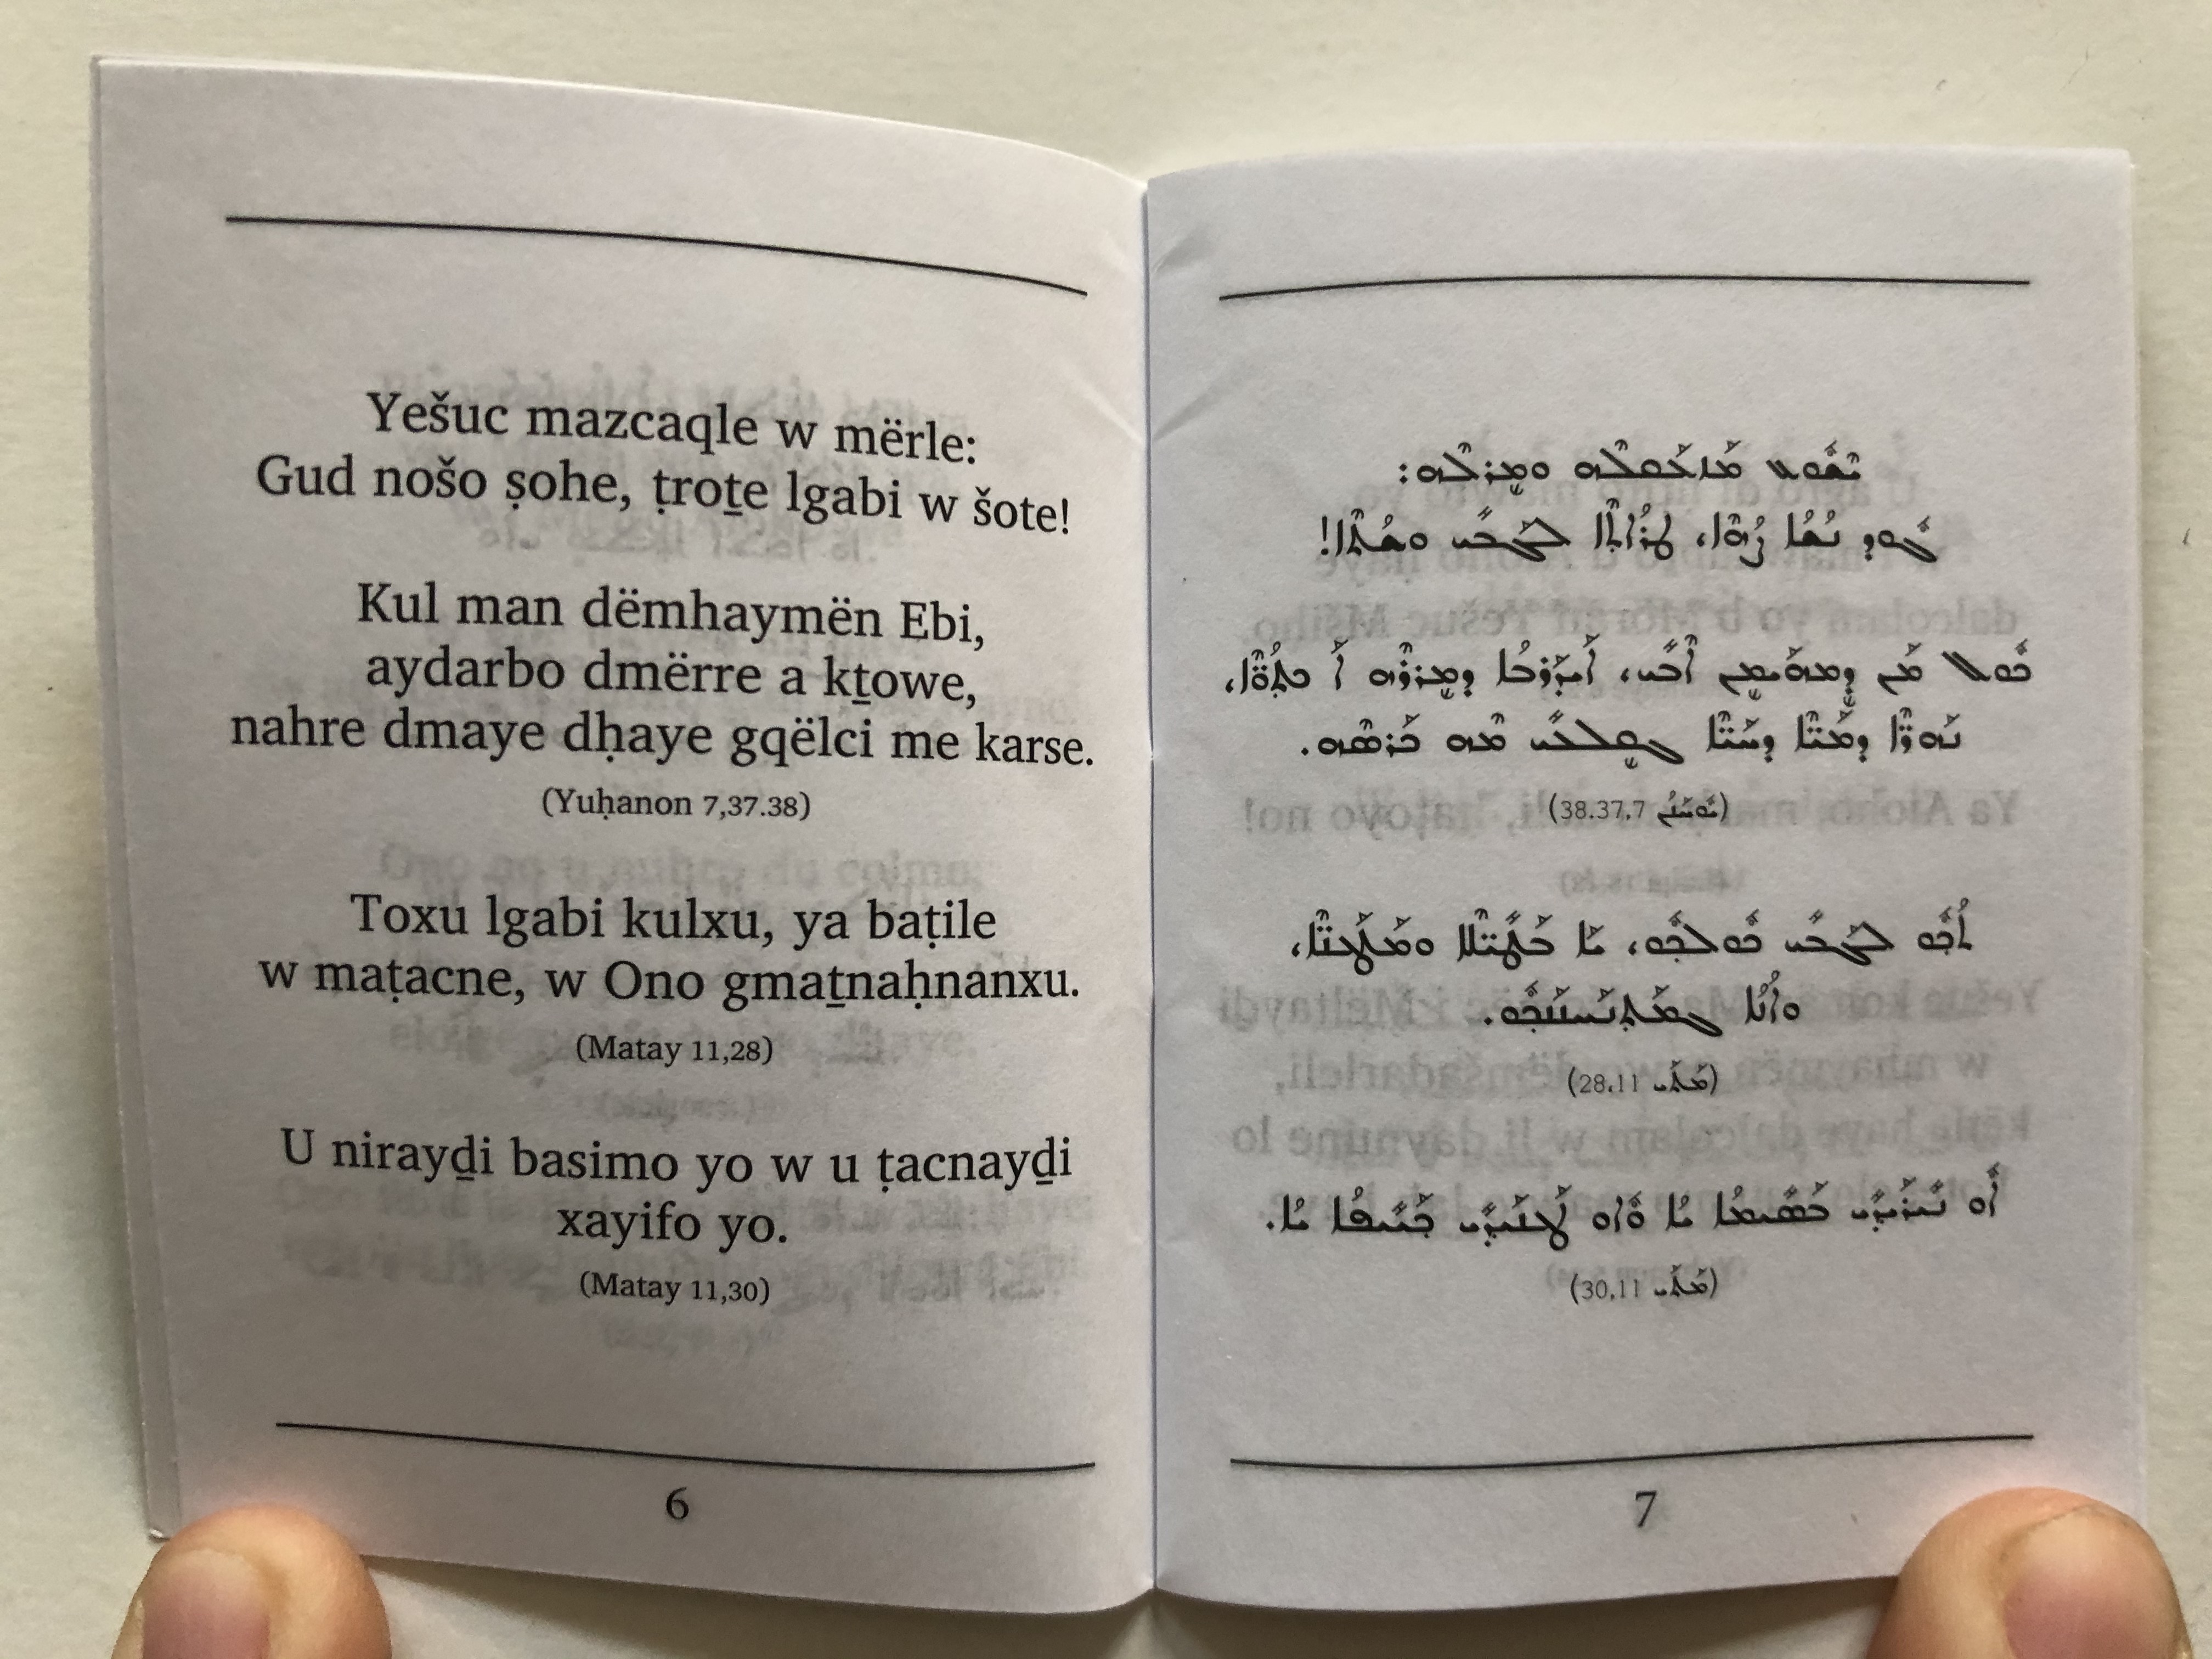 Yešuc mazcaqle w mërle:
Gud nošo ṣohe, ṭroṯe lgabi w šote!
Kul man dëmhaymën Ebi,
aydarbo dmërre a kṯowe,
nahre dmaye dḥaye gqëlci me karse.
(Yuḥanon 7,37.38)
Toxu lgabi kulxu, ya baṭile
w maṭacne, w Ono gmaṯnaḥnanxu.
(Matay 11,28)
U nirayḏi basimo yo w u ṭacnayḏi
xayifo yo.
(Matay 11,30)
6
ܝܶܫܽܘܥ ܡܰܙܥܰܩܠܶܗ ܘܡܸܪܠܶܗ:
ܓܽܘܕ ܢܳܫܳܐ ܨܳܗܶܐ، ܛܪܳܐܬ݂ܶܐ ܠܓܰܒܝ ܘܫܳܬܶܐ!
ܟܽܘܠ ܡܰܢ ܕܸܡܗܰܝܡܸܢ ܐܶܒܝ، ܐܰܝܕܰܪܒܳܐ ܕܡܸܪܪܶܗ ܐַ ܟܬ݂ܳܘ̈ܶܐ،
ܢܰܗܪ̈ܶܐ ܕܡܰܝ̈ܶܐ ܕܚܰܝ̈ܶܐ ܓܩܸܠܒܝ ܡܶܗ ܟܰܪܣܶܗ.
(ܝܽܘܚܰܢܳܢ 38.37,7)
ܬܳܟ݂ܘ ܠܓܰܒܝ ܟܽܘܠܟ݂ܽܘ، ܝܰܐ ܒܰܛܝ̈ܠܶܐ ܘܡܰܛܥܢ̈ܶܐ،
ܘܐܳܢܳܐ ܓܡܰܬ݂ܢܰܚܢܰܢܟ݂ܽܘ.
(ܡܰܬܰܝ 28,11)
ܐܽܘ ܢܝܪܰܝܕ݂ܝ ܒܰܣܝܡܳܐ ܝܳܐ ܘܐܽܘ ܛܥܢܰܝܕ݂ܝ ܟ݂ܰܝܝܦܳܐ ܝܳܐ.
(ܡܰܬܰܝ 30,11)
7